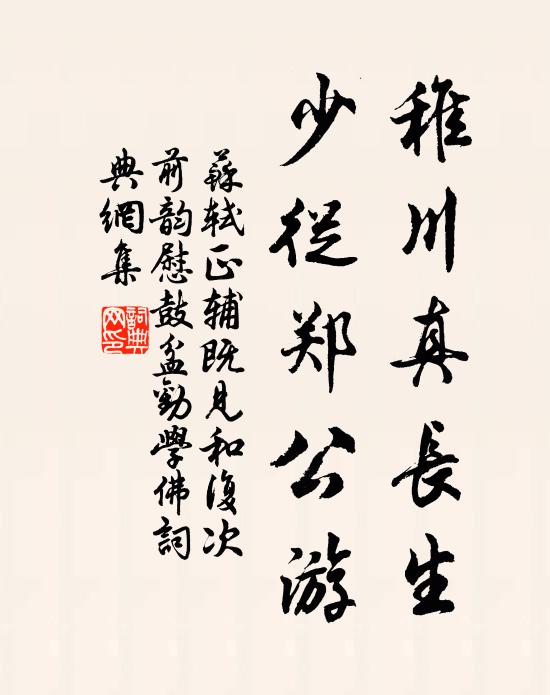 稚川真長生
少從郑公游
蘇轼正辅既見和復次
前韵慰鼓盆勸學佛詞
典網集
詞典网印